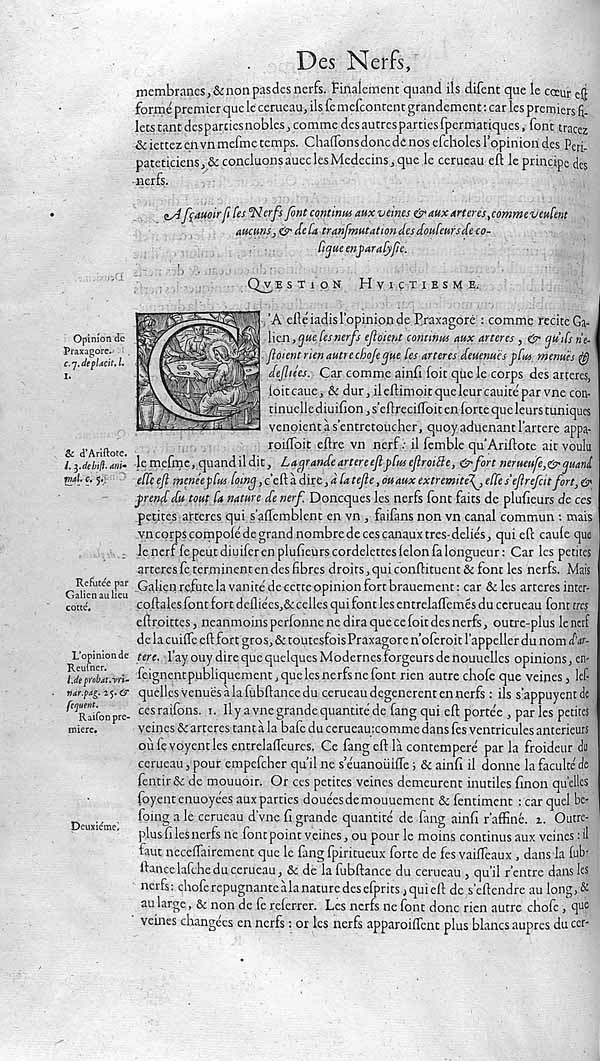 Des Nerfs,
membranes, & non pas des nerfs. Finalement quand ils disent que le cœur est
formé premier que le cerueau, ils se mescontent grandement : car les premiers fi-
lets tant des parties nobles, comme des autres parties spermatiques, sont tracez
& iettez en vn mesme temps. Chassons donc de nos escholes l'opinion des Peri-
pateticiens, & concluons auec les Medecins, que le cerueau est le principe des
nerfs.
A sçauoir si les Nerfs sont continus aux veines & aux arteres, comme veulent
aucuns, & de la transmutation des douleurs de co-
lique en paralysie.
QVESTION HVICTIESME.
Opinion de
Praxagore.
c. 7. de placit. l.
1.
C'A esté iadis l'opinion de Praxagore : comme recite Ga-
lien, que les nerfs estoient continus aux arteres, & qu'ils n'e-
stoient rien autre chose que les arteres deuenuës plus menuës &
desliées. Car comme ainsi soit que le corps des arteres,
soit caue, & dur, il estimoit que leur cauité par vne con-
tinuelle diuision, s'estrecissoit en sorte que leurs tuniques
venoient à s'entretoucher, quoy aduenant l'artere appa-
roissoit estre vn nerf : il semble qu'Aristote ait voulu
& d'Aristote.
l. 3. de hist. ani-
mal. c. 5.
le mesme, quand il dit, La grande artere est plus estroicte, & fort nerueuse, & quand
elle est menée plus loing, c'est à dire, à la teste, ou aux extremitez, elle s'estrescit fort, &
prend du tout la nature de nerf. Doncques les nerfs sont faits de plusieurs de ces
petites arteres qui s'assemblent en vn, faisans non vn canal commun : mais
vn corps composé de grand nombre de ces canaux tres-deliés, qui est cause que
le nerf se peut diuiser en plusieurs cordelettes selon sa longueur : Car les petites
arteres se terminent en des fibres droits, qui constituent & font les nerfs. Mais
Refutée par
Galien au lieu
cotté.
Galien refute la vanité de cette opinion fort brauement : car & les arteres inter-
costales sont fort desliées, & celles qui font les entrelassemés du cerueau sont tres
estroittes, neanmoins personne ne dira que ce soit des nerfs, outre-plus le nerf
de la cuisse est fort gros, & toutesfois Praxagore n'oseroit l'appeller du nom d'ar-
L'opinion de
Reusner.
l. de probat. vri-
nar. pag. 25. &
sequent.
Raison pre-
miere.
tere. I'ay ouy dire que quelques Modernes forgeurs de nouuelles opinions, en-
seignent publiquement, que les nerfs ne sont rien autre chose que veines, les-
quelles venuës à la substance du cerueau degenerent en nerfs : ils s'appuyent de
ces raisons. 1. Il y a vne grande quantité de sang qui est portée, par les petites
veines & arteres tant à la base du cerueau: comme dans ses ventricules anterieurs
où se voyent les entrelasseures. Ce sang est là contemperé par la froideur du
cerueau, pour empescher qu'il ne s'éuanoüisse ; & ainsi il donne la faculté de
sentir & de mouuoir. Or ces petites veines demeurent inutiles sinon qu'elles
soyent enuoyées aux parties douées de mouuement & sentiment : car quel be-
soing a le cerueau d'vne si grande quantité de sang ainsi r'affiné. 2. Outre-
Deuxiéme.
plus si les nerfs ne sont point veines, ou pour le moins continus aux veines : il
faut necessairement que le sang spiritueux sorte de ses vaisseaux, dans la sub-
stance lasche du cerueau, & de la substance du cerueau, qu'il r'entre dans les
nerfs : chose repugnante à la nature des esprits, qui est de s'estendre au long, &
au large, & non de se reserrer. Les nerfs ne sont donc rien autre chose, que
veines changées en nerfs : or les nerfs apparoissent plus blancs aupres du cer-